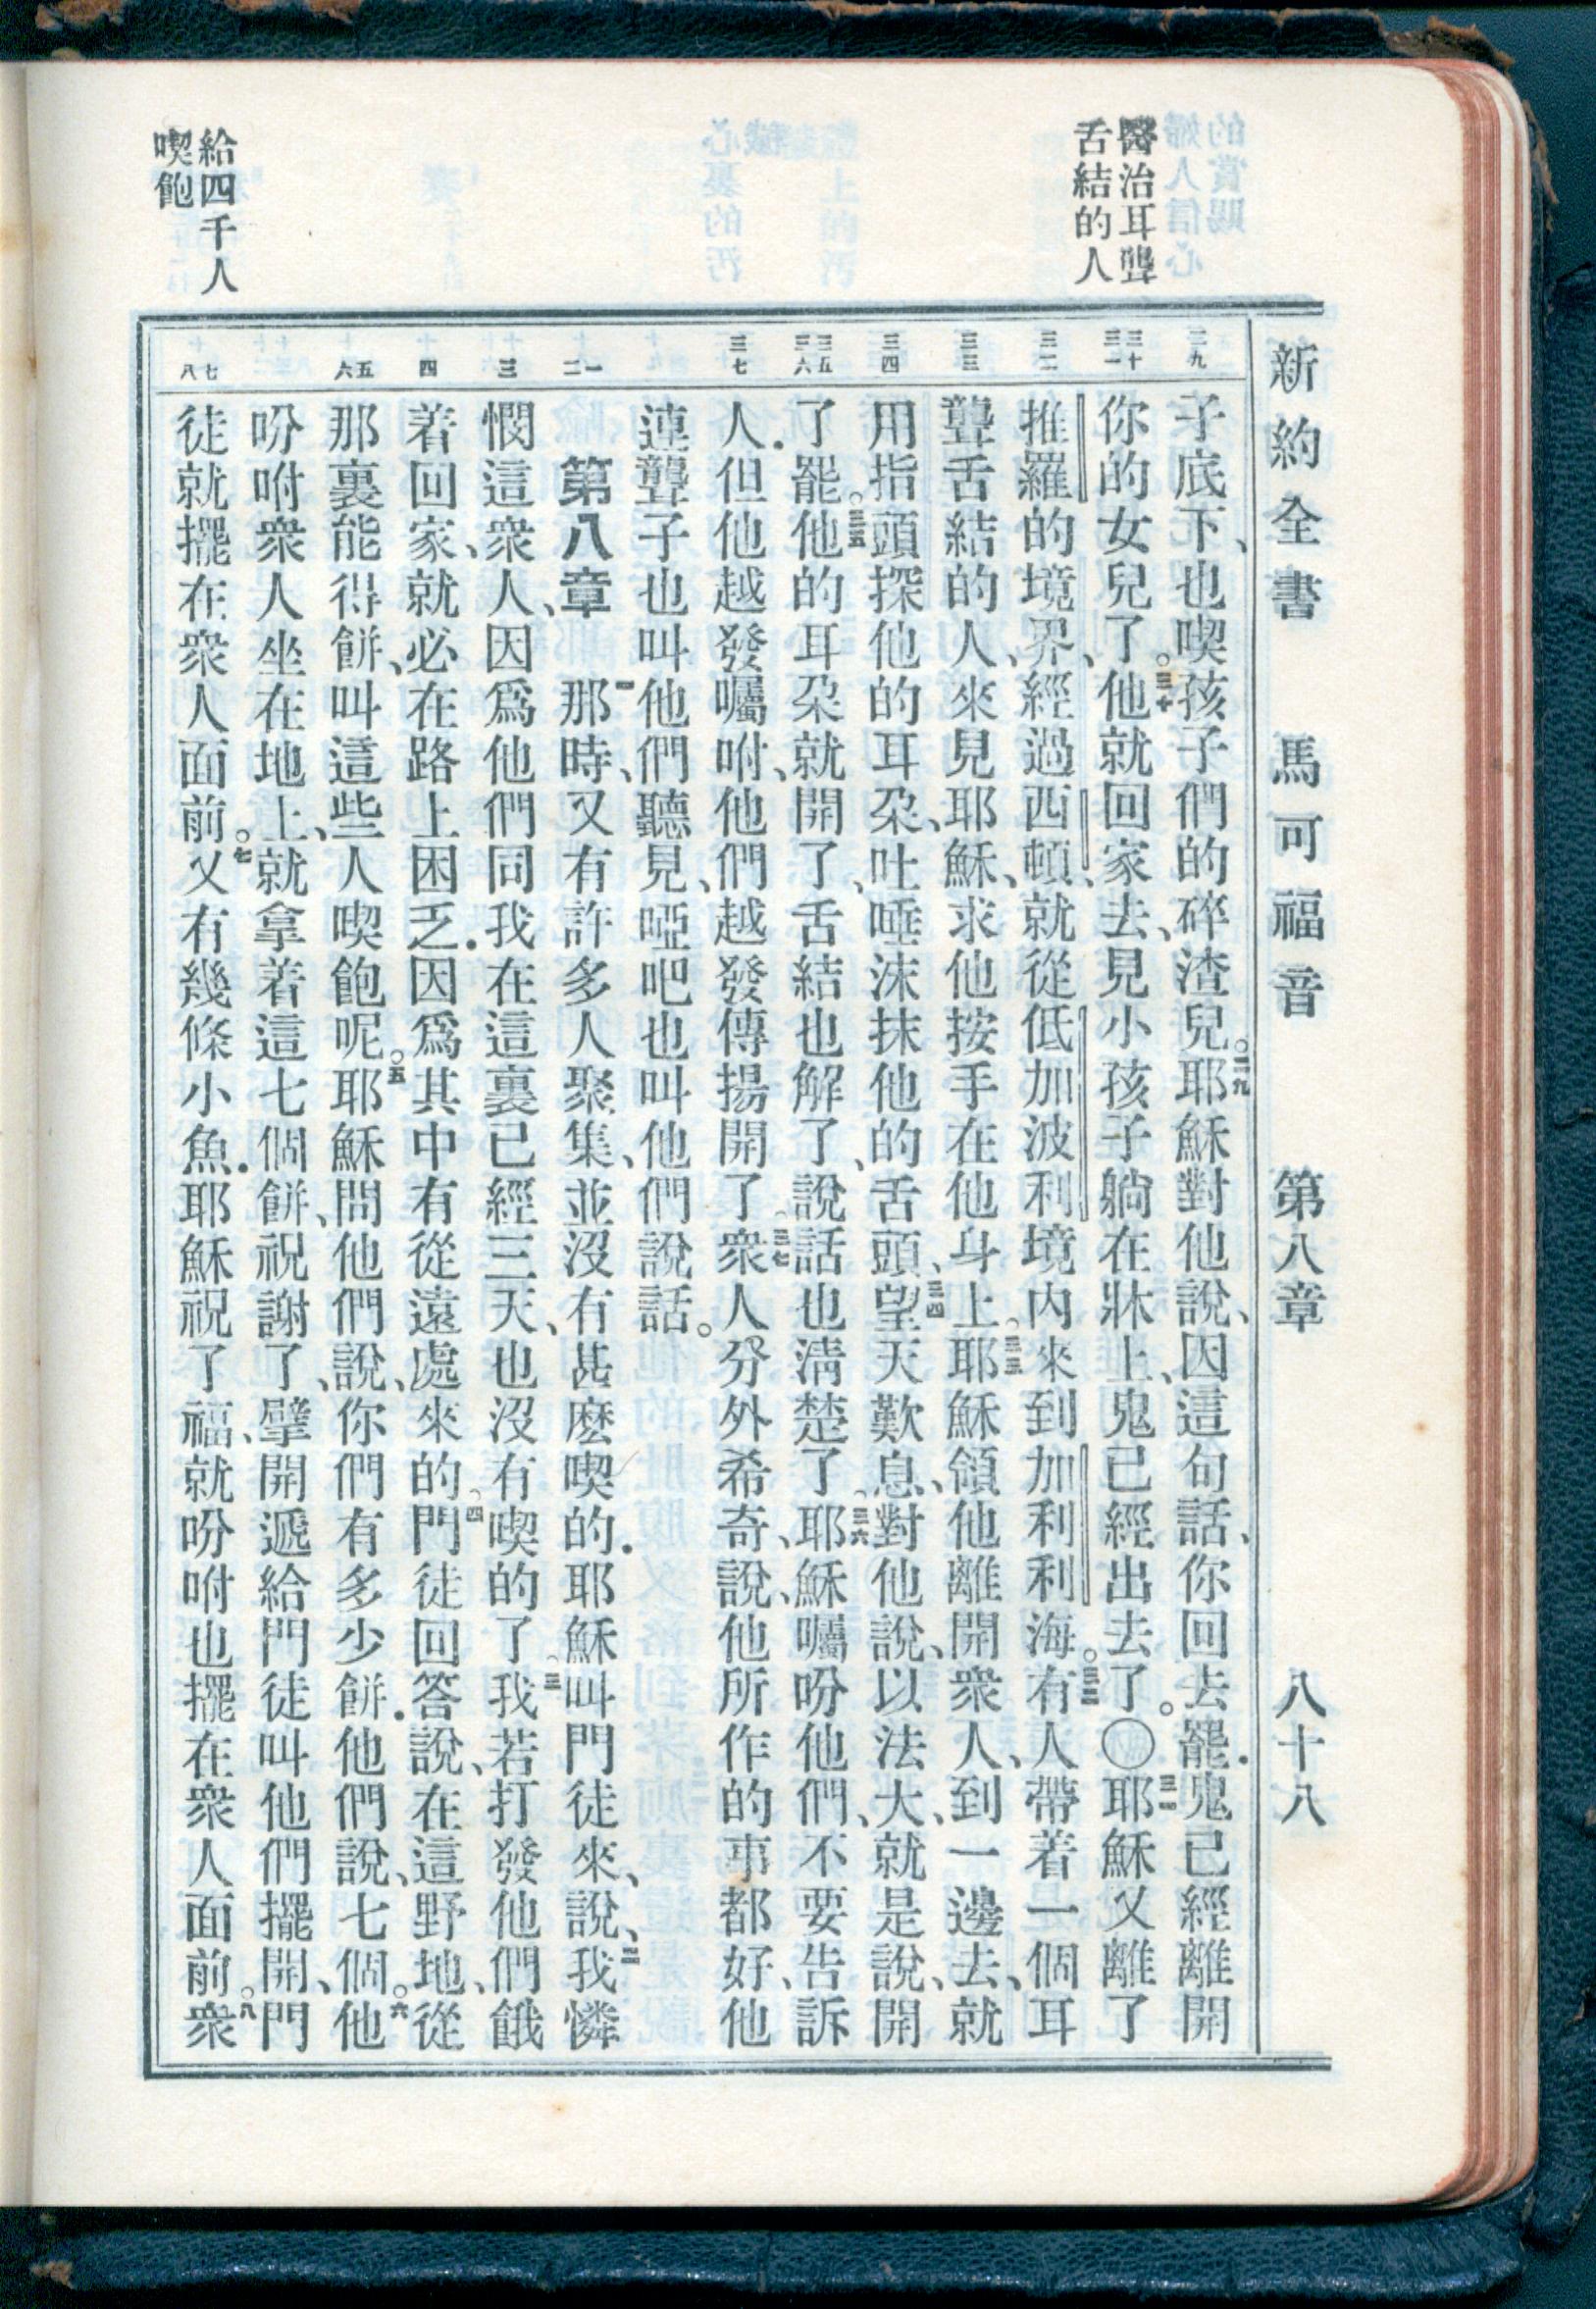 醫治耳聾
舌結的人
給四千人
喫飽
新約全書 馬可福音 第八章 八十八
二九
三十
三一
三二
三三
三四
三五
三六
三七
一
二
三
四
五
六
七
八
子底下、也喫孩子們的碎渣兒。二九耶穌對他說、因這句話、你回去罷．鬼已經離開
你的女兒了。三十他就回家去、見小孩子躺在牀上、鬼已經出去了。〇三一耶穌又離了
推羅的境界、經過西頓、就從低加波利境內來到加利利海。三二有人帶着一個耳
聾舌結的人、來見耶穌、求他按手在他身上。三三耶穌領他離開衆人、到一邊去、就
用指頭探他的耳朶、吐唾沫抹他的舌頭、三四望天歎息、對他說、以法大、就是說、開
了罷。三五他的耳朶就開了、舌結也解了、說話也清楚了。三六耶穌囑吩他們、不要告訴
人．但他越發囑咐、他們越發傳揚開了。三七衆人分外希奇、說、他所作的事都好、他
連聾子也叫他們聽見、啞吧也叫他們說話。
第八章 一那時、又有許多人聚集、並沒有甚麼喫的．耶穌叫門徒來、說、二我憐
憫這衆人、因爲他們同我在這裏已經三天、也沒有喫的了。三我若打發他們餓
着回家、就必在路上困乏．因爲其中有從遠處來的。四門徒回答說、在這野地、從
那裏能得餅、叫這些人喫飽呢。五耶穌問他們說、你們有多少餅．他們說、七個。六他
吩咐衆人坐在地上、就拿着這七個餅、祝謝了、擘開遞給門徒叫他們擺開、門
徒就擺在衆人面前。七又有幾條小魚．耶穌祝了福、就吩咐也擺在衆人面前。八衆